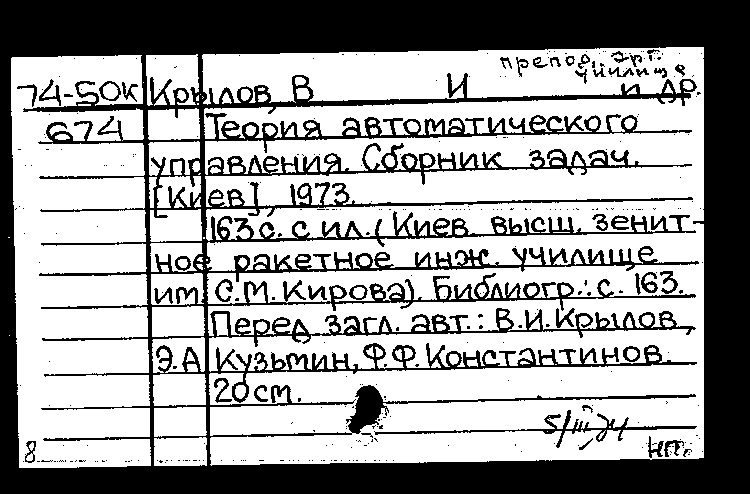 препод. арт.
училище
74-50к Крылов, В И и др.
674 Теория автоматического
управления. Сборник задач.
[Киев], 1973.
163 с. с ил. (Киев. высш. зенит-
ное ракетное инж. училище
им. С.М. Кирова). Библиогр.: с. 163.
Перед загл. авт.: В.И. Крылов,
Э.А Кузьмин, Ф.Ф. Константинов.
20 см.
5/III 74
8 НП.